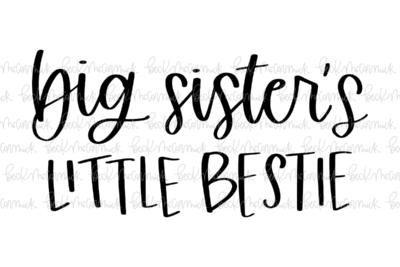 big sister's
LITTLE BESTIE